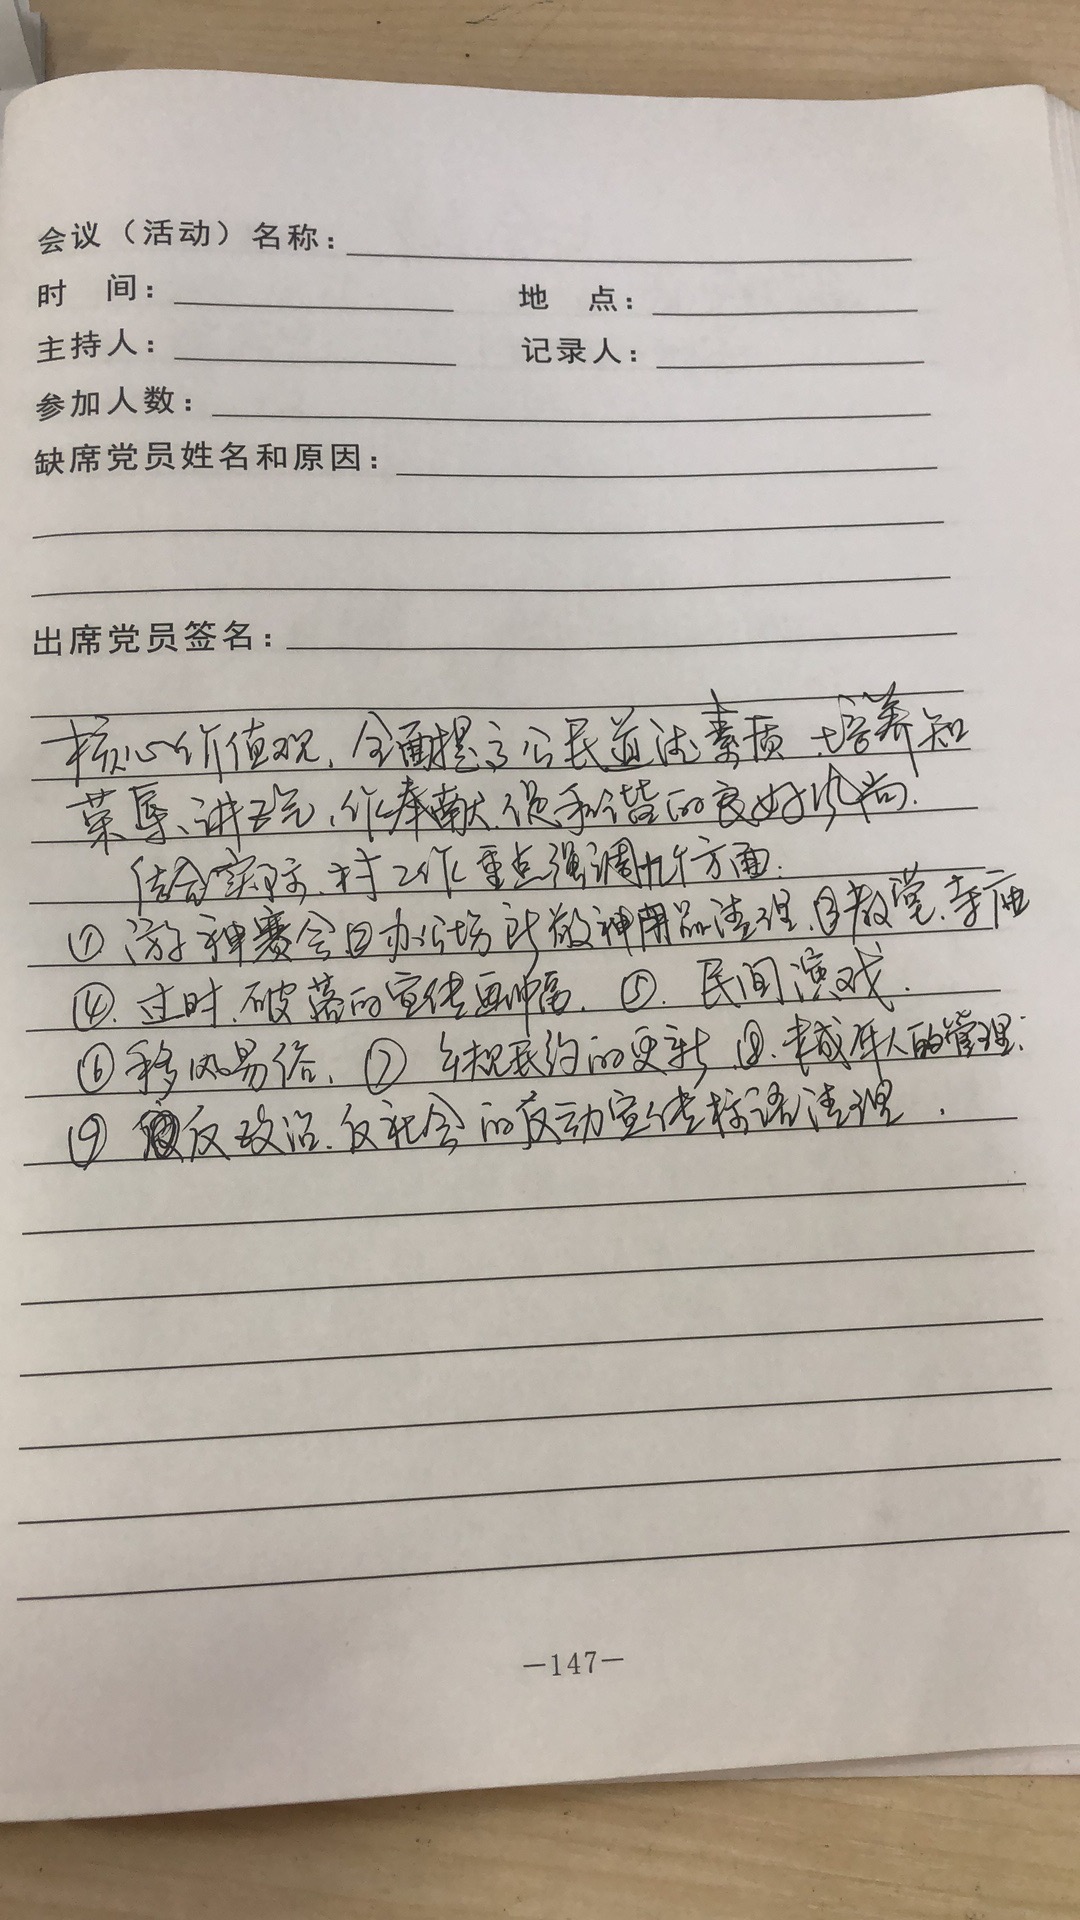 会议（活动）名称：
时 间： 地 点：
主持人： 记录人：
参加人数：
缺席党员姓名和原因：
出席党员签名：
核心价值观，全面提高公民道德素质，培养知
荣辱、讲正气、作奉献、促和谐的良好风尚.
结合实际，村工作重点强调九个方面:
① 游神赛会 ② 办公场所敬神用品清理. ③ 教堂、寺庙
④. 过时、破落的宣传画 ⑤. 民间演戏.
⑥ 移风易俗. ⑦ 乡规民约的更新. ⑧. 未成年人的管理;
⑨ 反政治、反社会的反动宣传标语清理.
-147-